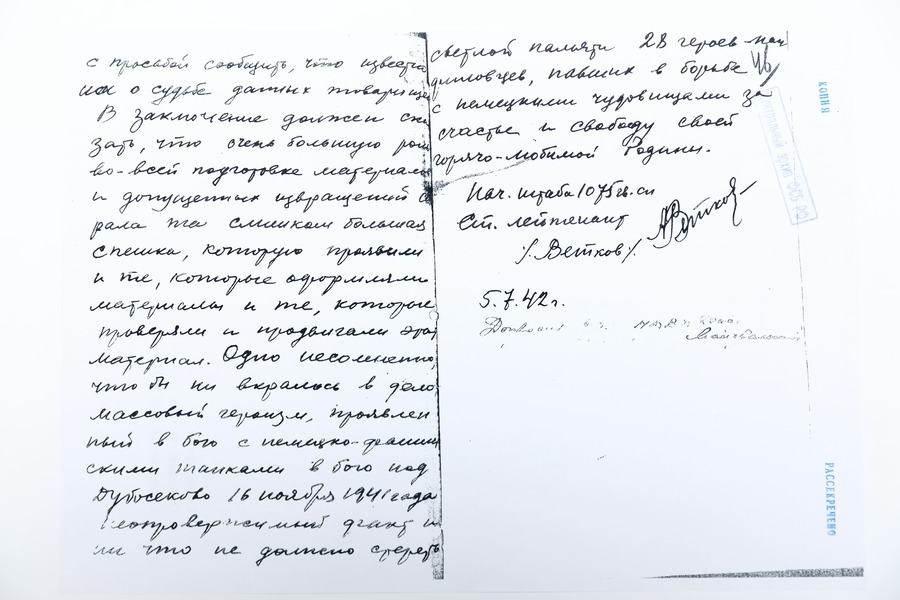 с просьбой сообщить, что известно
им о судьбе данных товарищей
В заключение должен ска
зать, что очень большую роль
во всей подготовке материала
и допущенных извращений с
рала та слишком большая
спешка, которую проявили
и те, которые оформляли
материалы и те, которые
проверяли и продвигали этот
материал. Одно несомненно,
что бы ни вкралось в дело
массовый героизм, проявлен
ный в бою с немецко-фашист
скими танками в бою под
Дубосеково 16 ноября 1941 года
неопровержимый факт и
ни что не должно стереть
светлой памяти 28 героев-пан
филовцев, павших в борьбе
с немецкими чудовищами за
счастье и свободу своей
горячо-любимой Родины.
46
Нач. штаба 1075 гв. сп
Ст. лейтенант
/. Ветков /.
5.7.42 г.
КОПИЯ
РАССЕКРЕЧЕНО